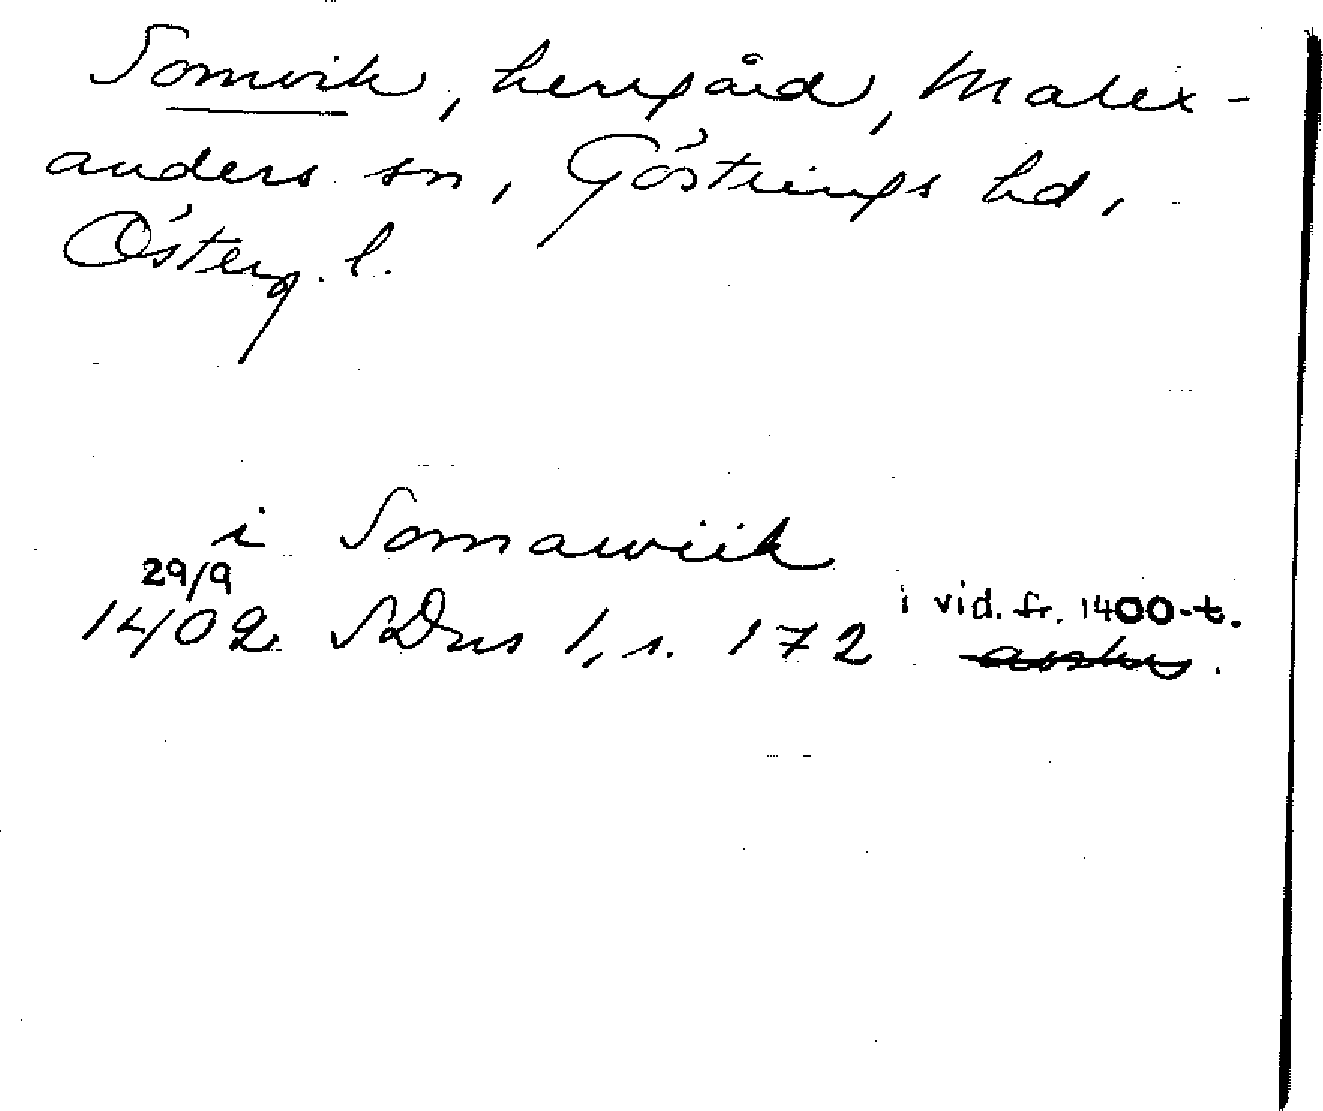 Somvik, herrgård, Malex-
anders sn, Göstrings hd,
Österg. l.
i Somawiik
29/9
1402 SDns 1, s. 172 i vid. fr. 1400-t.